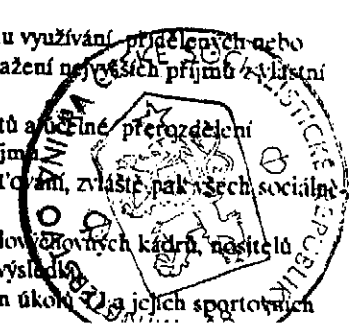 u využívání přidělených nebo
ažení nejvyšších příjmů z vlastní
tů a účelné přerozdělení
jmů
ťování, zvláště pak všech sociálně-
dových kádrů, nositelů
výsledků
n úkolů TJ a jejich sportovních
SOCIALISTICKÉ REPUBLIK